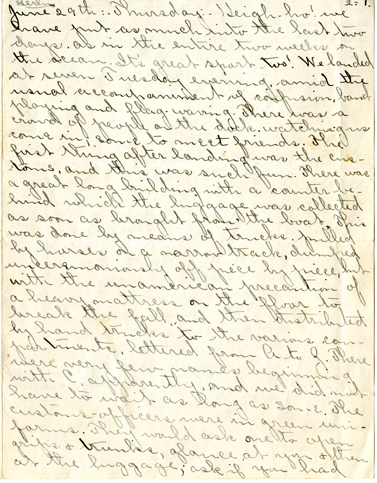 2-1.
June 29th: Thursday: Heigh-ho! we
have put as much into the last two
days as in the entire two weeks on
the ocean. It's great sport too! We landed
at seven Tuesday evening, amid the
usual accompaniment of confusion, band
playing and flag waving. There was a
crowd of people on the dock, watching us
come in; some to meet friends. The
first thing after landing was the cus-
toms, and this was such fun. There was
a great long building with a counter be-
hind which the luggage was collected
as soon as brought from the boat. This
was done by means of trucks, pulled
by horses on a narrow track, dumped
unceremoniously off piece by piece, but
with the unamerican precaution of
a heavy mattress on the floor to
break the fall, and then distributed
by hand trucks to the various com-
partments, lettered from A to Z. There
were very few names beginning
with C, apparently, and we did not
have to wait as long as some. The
customs officers were in green uni-
forms. They would ask one to open
grips & trunks, glance at you & then
at the luggage; ask if you had